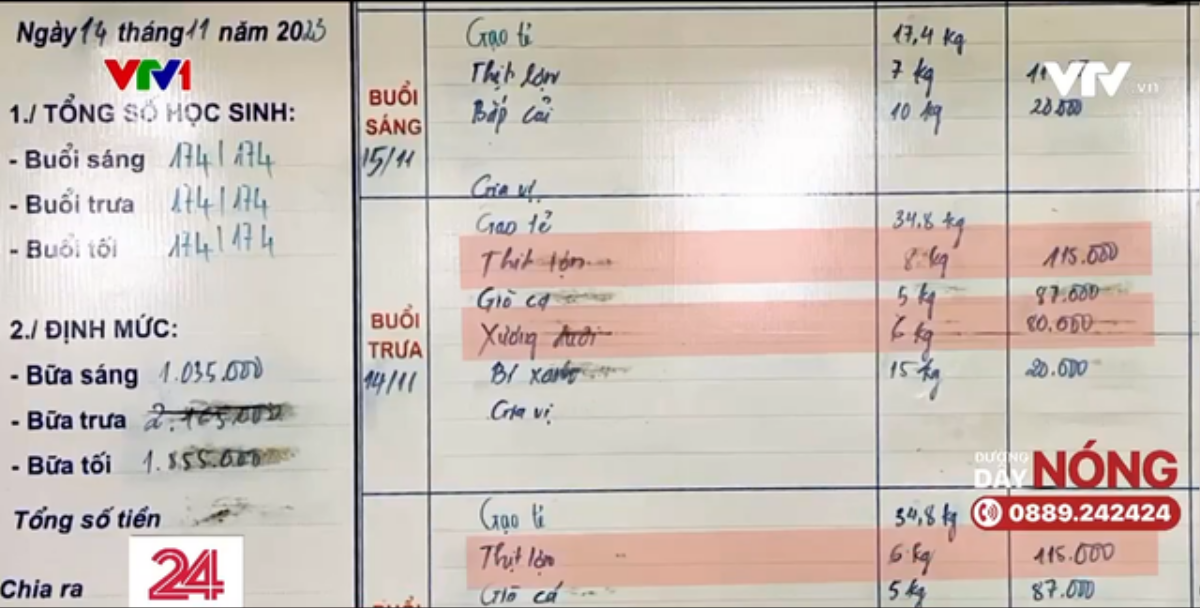 Ngày 14 tháng 11 năm 2023
VTV1
1./ TỔNG SỐ HỌC SINH:
- Buổi sáng 174 | 174
- Buổi trưa 174 | 174
- Buổi tối 174 | 174
2./ ĐỊNH MỨC:
- Bữa sáng 1.035.000
- Bữa trưa 2.165.000
- Bữa tối 1.855.000
Tổng số tiền
Chia ra
24
BUỔI SÁNG
15/11
Gạo tẻ 17,4 kg
Thịt lợn 7 kg
Bắp cải 10 kg 20.000
Gia vị
BUỔI TRƯA
14/11
Gạo tẻ 34.8 kg
Thịt lợn 8 kg 115.000
Giò cá 5 kg 87.000
Xương 6 kg 80.000
Bí xanh 15 kg 20.000
Gia vị
BUỔI
Gạo tẻ 34,8 kg
Thịt lợn 6 kg 115.000
Giò cá 5 kg 87.000
VTV.vn
ĐƯỜNG DÂY NÓNG
0889.242424